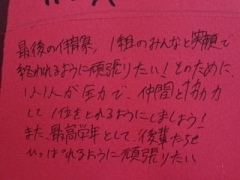 最後の体育祭、1組のみんなと笑顔で
終われるように頑張りたい！そのために、
1人1人が全力で、仲間と協力
して1位をとれるようにしましょう！
また、最高学年として、後輩たちを
ひっぱれるように頑張りたい